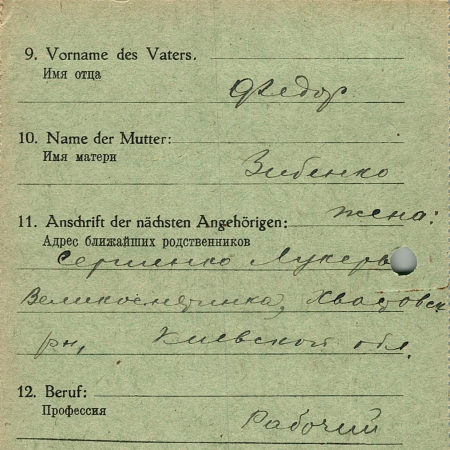 9. Vorname des Vaters.
Имя отца
Федор
10. Name der Mutter:
Имя матери
Зибенко
11. Anschrift der nächsten Angehörigen: жена:
Адрес ближайших родственников
Сергиенко Лукерь
рн, Киевской обл.
12. Beruf:
Профессия
Рабочий